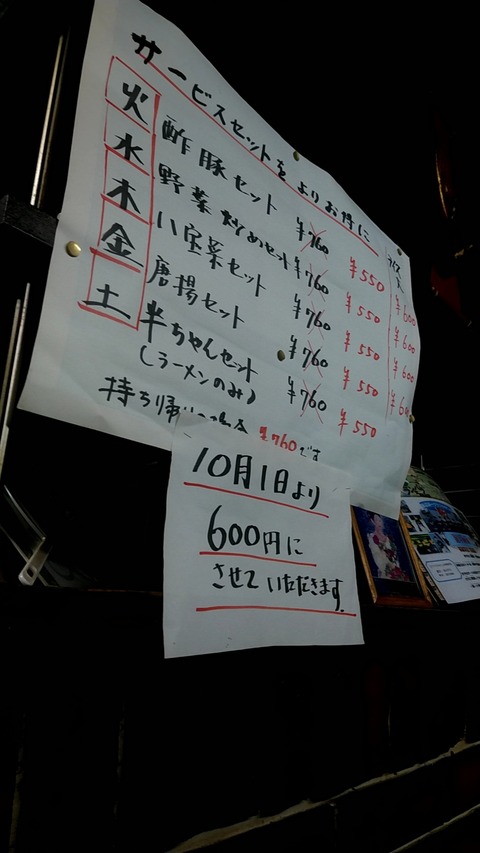 サービスセットをよりお得に
火 酢豚セット ¥760 ¥550 ¥600
水 野菜炒めセット ¥760 ¥550 ¥600
木 八宝菜セット ¥760 ¥550 ¥600
金 唐揚セット ¥760 ¥550
土 半ちゃんセット ¥760 ¥550
(ラーメンのみ)
持ち帰り ¥760です
10月1日より
600円に
させていただきます.